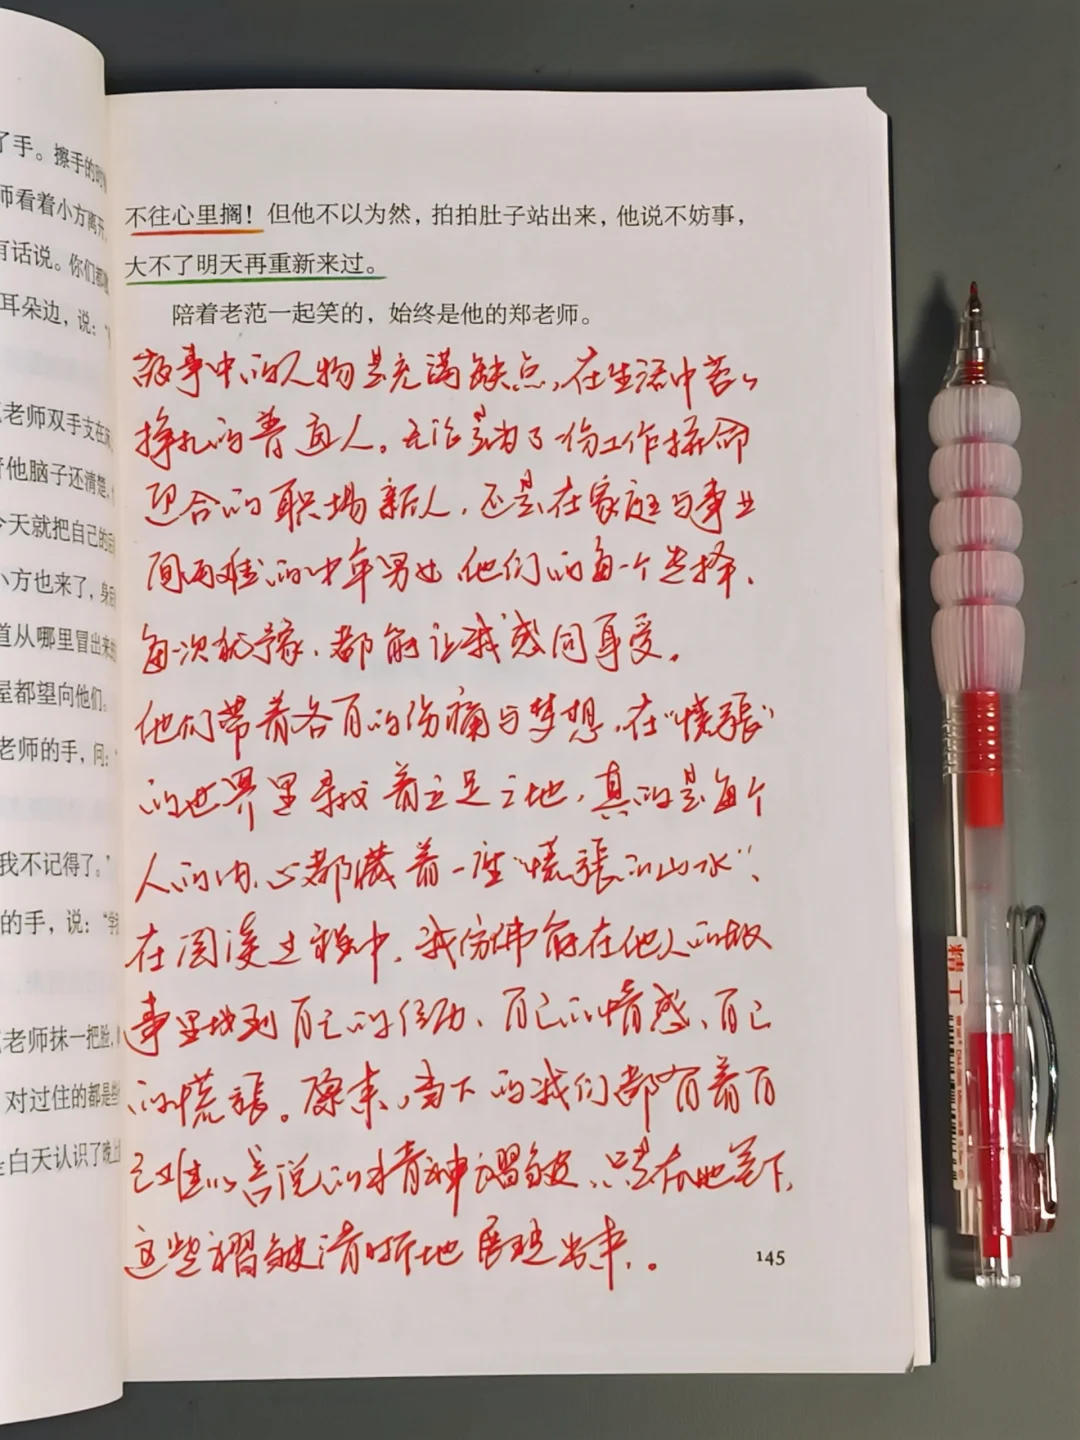 了手。擦手的时
师看着小方离开,
有话说。你们都
耳朵边，说：“
老师双手支在
他脑子还清楚，
今天就把自己的
小方也来了，身
道从哪里冒出来的
屋都望向他们。
老师的手，问：“
我不记得了。”
的手，说：“学
老师抹一把脸，
对过住的都是些
白天认识了晚上
不往心里搁！但他不以为然，拍拍肚子站出来，他说不妨事，
大不了明天再重新来过。
陪着老范一起笑的，始终是他的郑老师。
故事中的人物是充满缺点，在生活中苦苦
挣扎的普通人。无论是为了一份工作拼命
迎合的职场新人，还是在家庭与事业
间两难的中年男女，他们的每一个选择、
每次犹豫，都能让我感同身受。
他们带着各自的伤痛与梦想，在“慌張”
的世界里寻找着立足之地，真的是每个
人的内心都藏着一座“慌張的山水”，
在阅读过程中，我仿佛能在他人的故
事里找到自己的经历、自己的情感、自己
的慌張。原来，当下的我们都有着自
己难以言说的精神褶皱，只是在她笔下，
这些褶皱清晰地展现出来。
145
精工